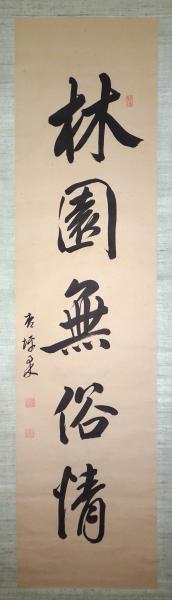 林園無俗情